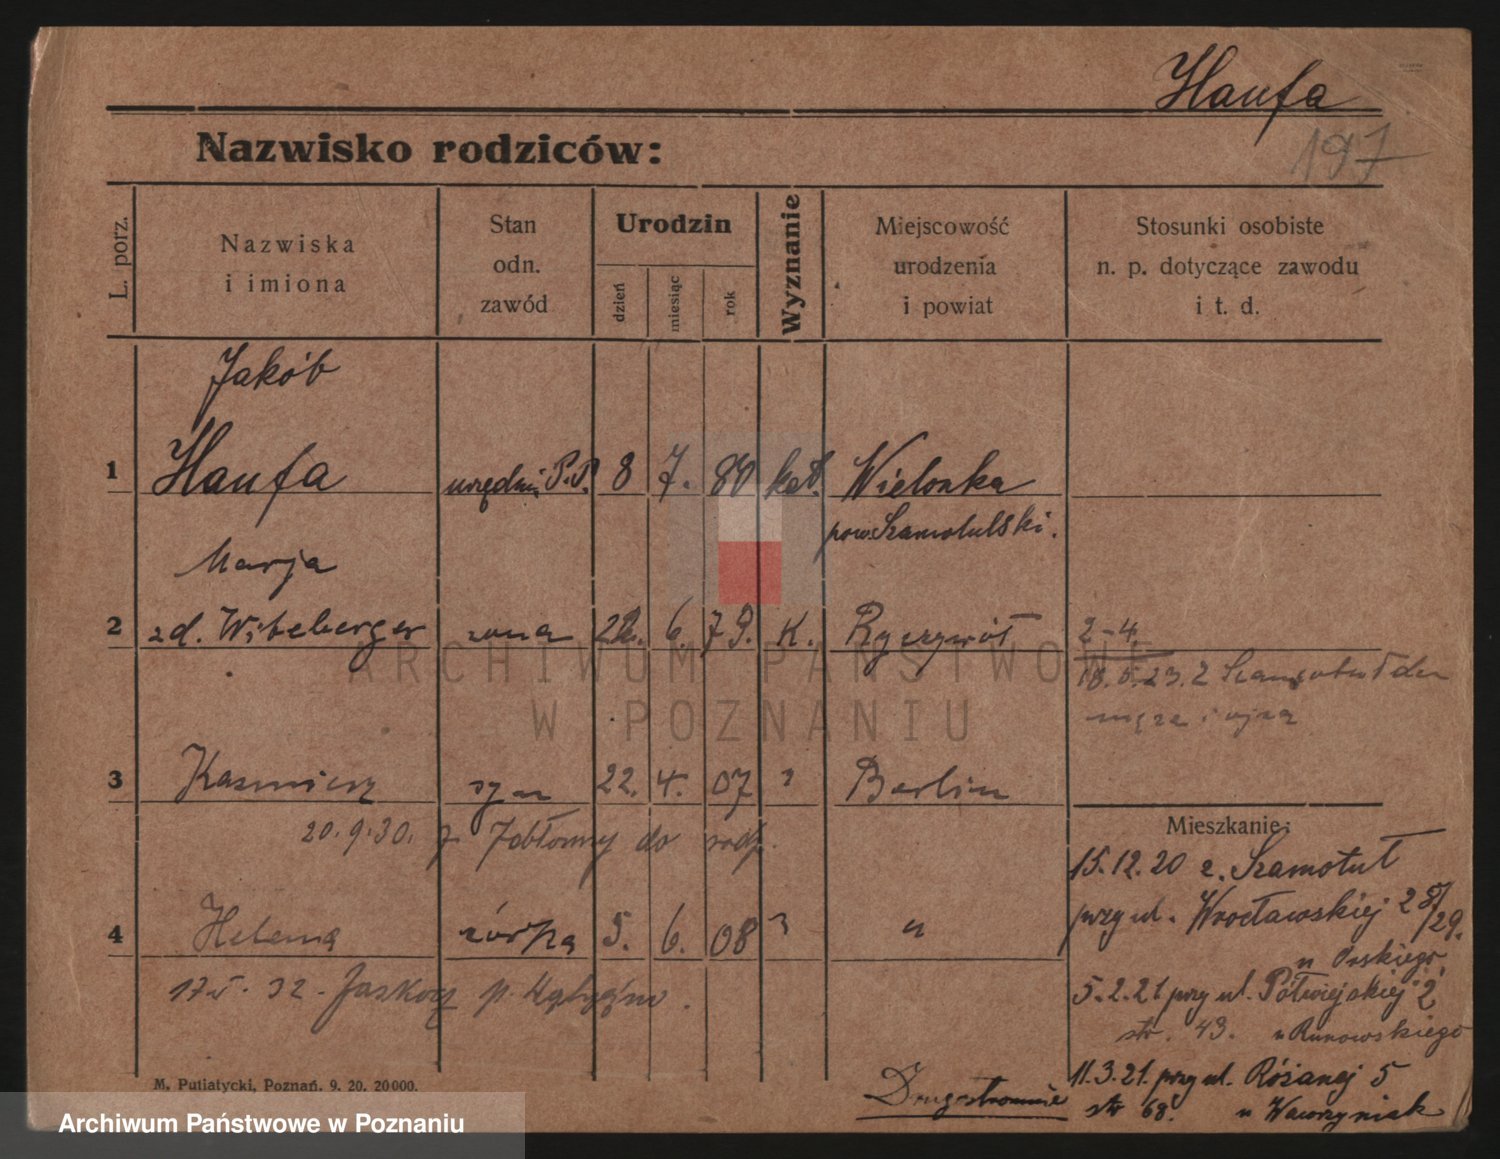 Haufa
197
Nazwisko rodziców:
L. porz.
Nazwiska
i imiona
Stan
odn.
zawód
Urodzin
dzień
miesiąc
rok
Wyznanie
Miejscowość
urodzenia
i powiat
Stosunki osobiste
n. p. dotyczące zawodu
i t. d.
Jakób
1 Haufa P.P. 8 7. 80 kat. Wielonka
pow. Szamotulski.
Marja
2 zd. Witeberger żona 22. 6. 79. K. Ryczywół 2-4.
18.5.23. z
męża
3 Kazmierz syn 22. 4. 07 " Berlin
20.9.30. z do rodz.
Mieszkanie:
15.12.20 z. Szamotuł
przy ul. Wrocławskiej 28/29.
4 Helena córka 5. 6. 08 " "
u
17 32.
5.2.21. przy ul. Półwiejskiej 2
str. 43. u Runowskiego
11.3.21. przy ul. Różanej 5
str 68. u Wawrzyniak
Drugostronnie
M. Putiatycki, Poznań. 9. 20. 20000.
ARCHIWUM PAŃSTWOWE
W POZNANIU
Archiwum Państwowe w Poznaniu